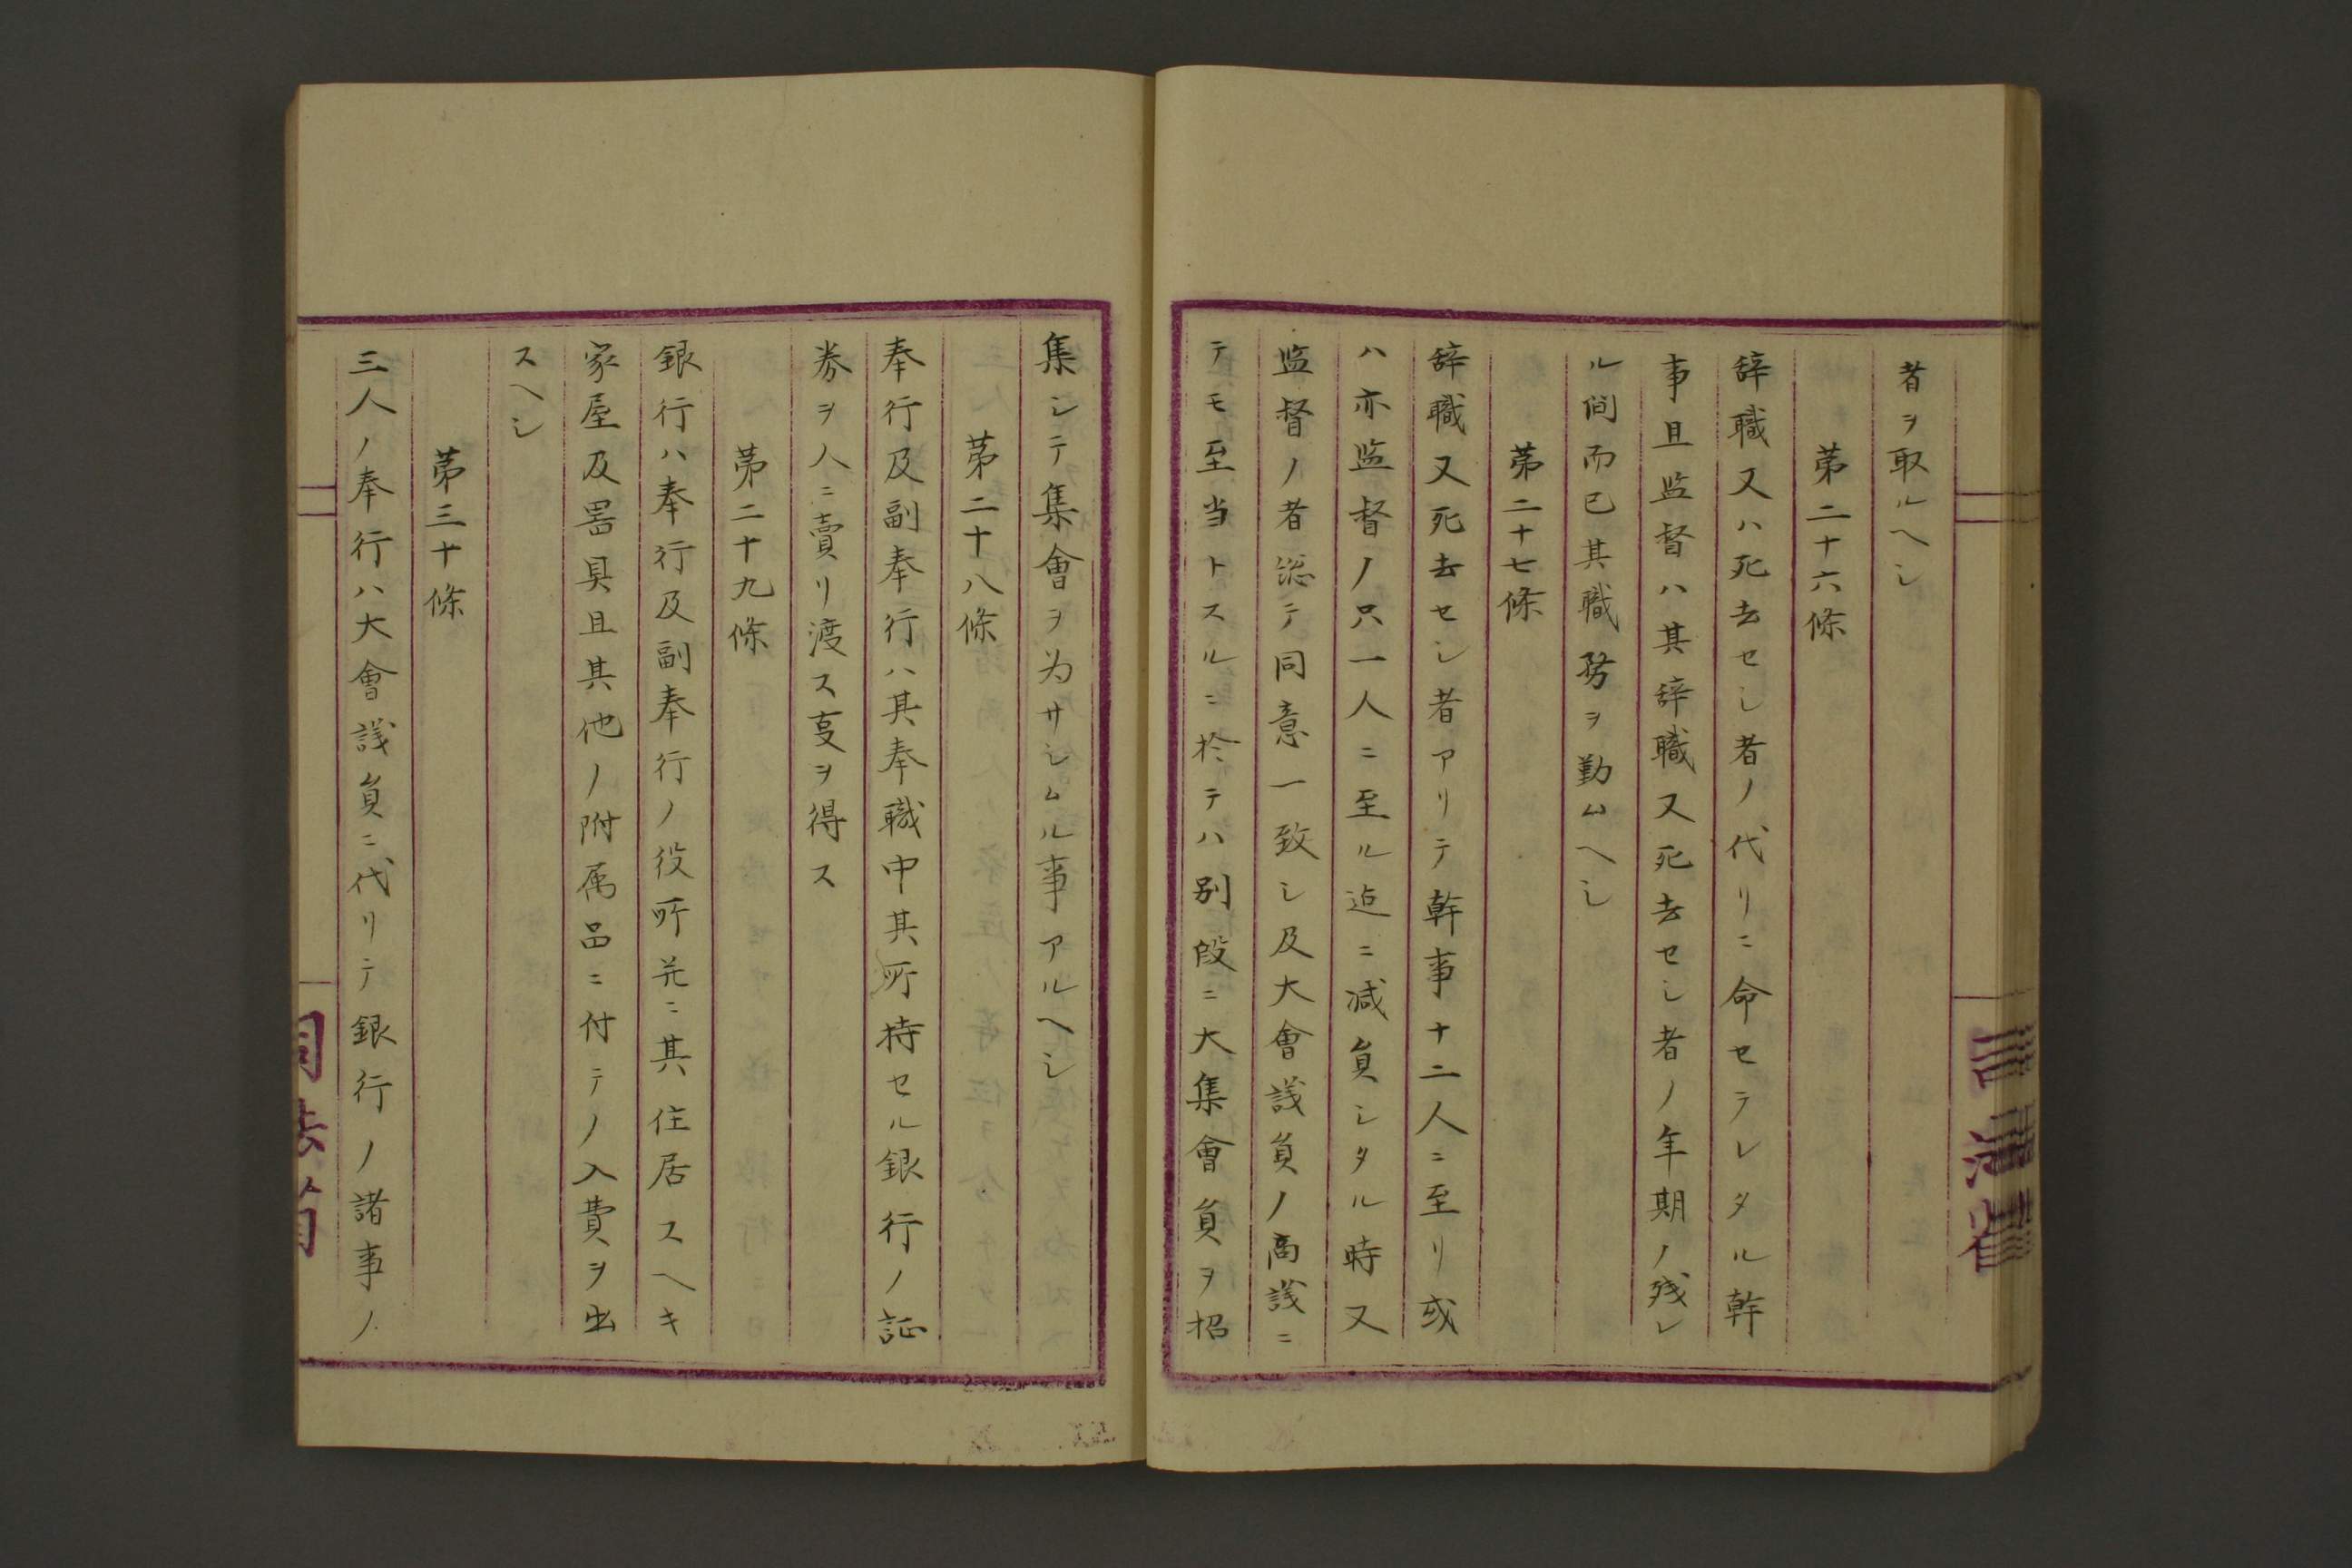 者ヲ取ルヘシ
第二十六條
辞職又ハ死去セシ者ノ代リニ命セラレタル幹
事且监督ハ其辞職又死去セシ者ノ年期ノ残レ
ル间而已其職務ヲ勤ムヘシ
第二十七條
辞職又死去セシ者アリテ幹事十二人ニ至リ或
ハ亦监督ノ只一人ニ至ル迠ニ減員シタル時又
监督ノ者総テ同意一致シ及大會議員ノ商議ニ
テモ至当トスルニ於テハ別段ニ大集會員ヲ招
集シテ集會ヲ为サシムル事アルヘシ
第二十八條
奉行及副奉行ハ其奉職中其所持セル銀行ノ証
券ヲ人ニ賣リ渡ス叓ヲ得ス
第二十九條
銀行ハ奉行及副奉行ノ役所并ニ其住居スヘキ
家屋及噐具且其他ノ附属品ニ付テノ入費ヲ出
スヘシ
第三十條
三人ノ奉行ハ大會議員ニ代リテ銀行ノ諸事ノ
司法省